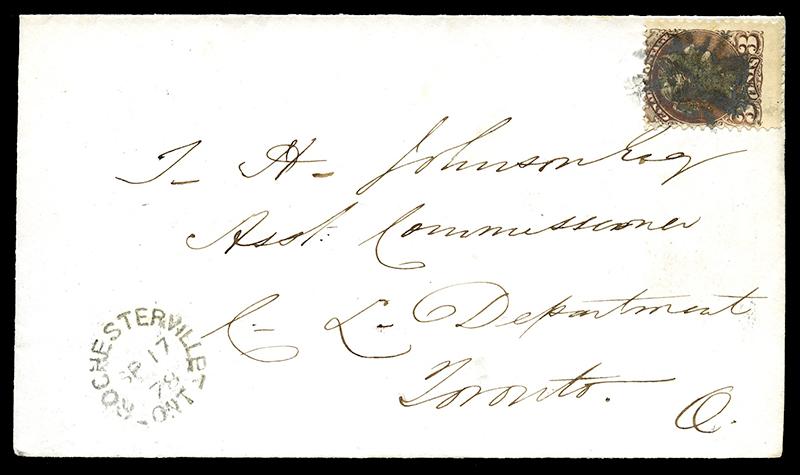 T- H- Johnson Esq
Asst. Commissioner
C- L- Department
Toronto. O.
ROCHESTERVILLE ONT
SP 17
78
3 CENTS 3